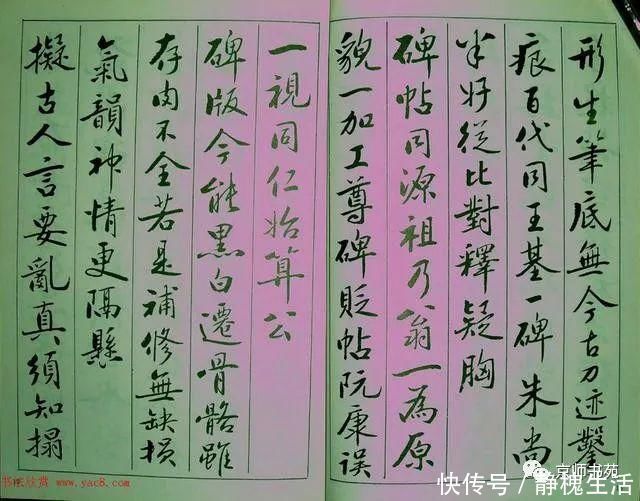 形生筆底無今古刀迹鑿
痕百代同王基一碑朱尚
半好從比對釋疑胸
碑帖同源祖乃翁一為原
貌一加工尊碑貶帖阮康誤
一視同仁始算公
碑版今能黑白遷骨骼雖
存肉不全若是補修無缺損
氣韻神情更隔懸
擬古人言要亂真須知搨
书法欣赏
www.yac8.com
京师书苑
快传号/静槐生活